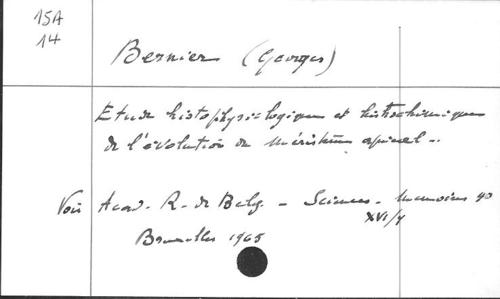 15A
14
Bernier (Georges)
Etude histophysiologique et histochimique
de l'évolution du méristème apical -.
Voir Acad. R. de Belg. - Sciences - Memoires 40
XVI/4
Bruxelles 1965